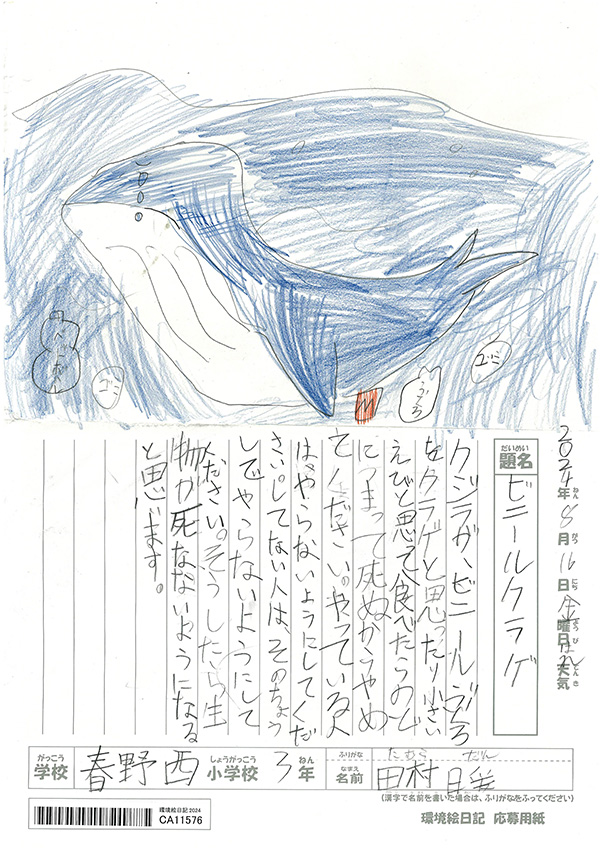 ゴミ
ふくろ
ゴミ
2024年ねん8月がつ16日にち金曜日ようびはれ天気てんき
だいめい
題名
ビニールクラゲ
クジラが、ビニールぶくろ
をクラゲと思ったり小さい
えびと思って食べたらのど
につまって死ぬからやめ
てください。やっている人
は、やらないようにしてくだ
さい。してない人は、そのちょう
しでやらないようにして
ください。そうしたら生
物が死なないようになる
と思います。
がっこう
学校
春野西
しょうがっこう
小学校
3
ねん
年
ふりがな
たむら だん
なまえ
名前
田村
(漢字で名前を書いた場合は、ふりがなをふってください)
環境絵日記 2024
CA11576
環境絵日記 応募用紙